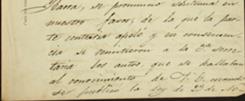 Ibarra, se pronunció sentencia en
nuestro favor, de la que la par-
te contraria apeló y en consecuen-
cia se remitieron a la 2ª secre-
taria los autos que se hallaban
al conocimiento de T. C. cuando
se publicó la ley de 23 de No-